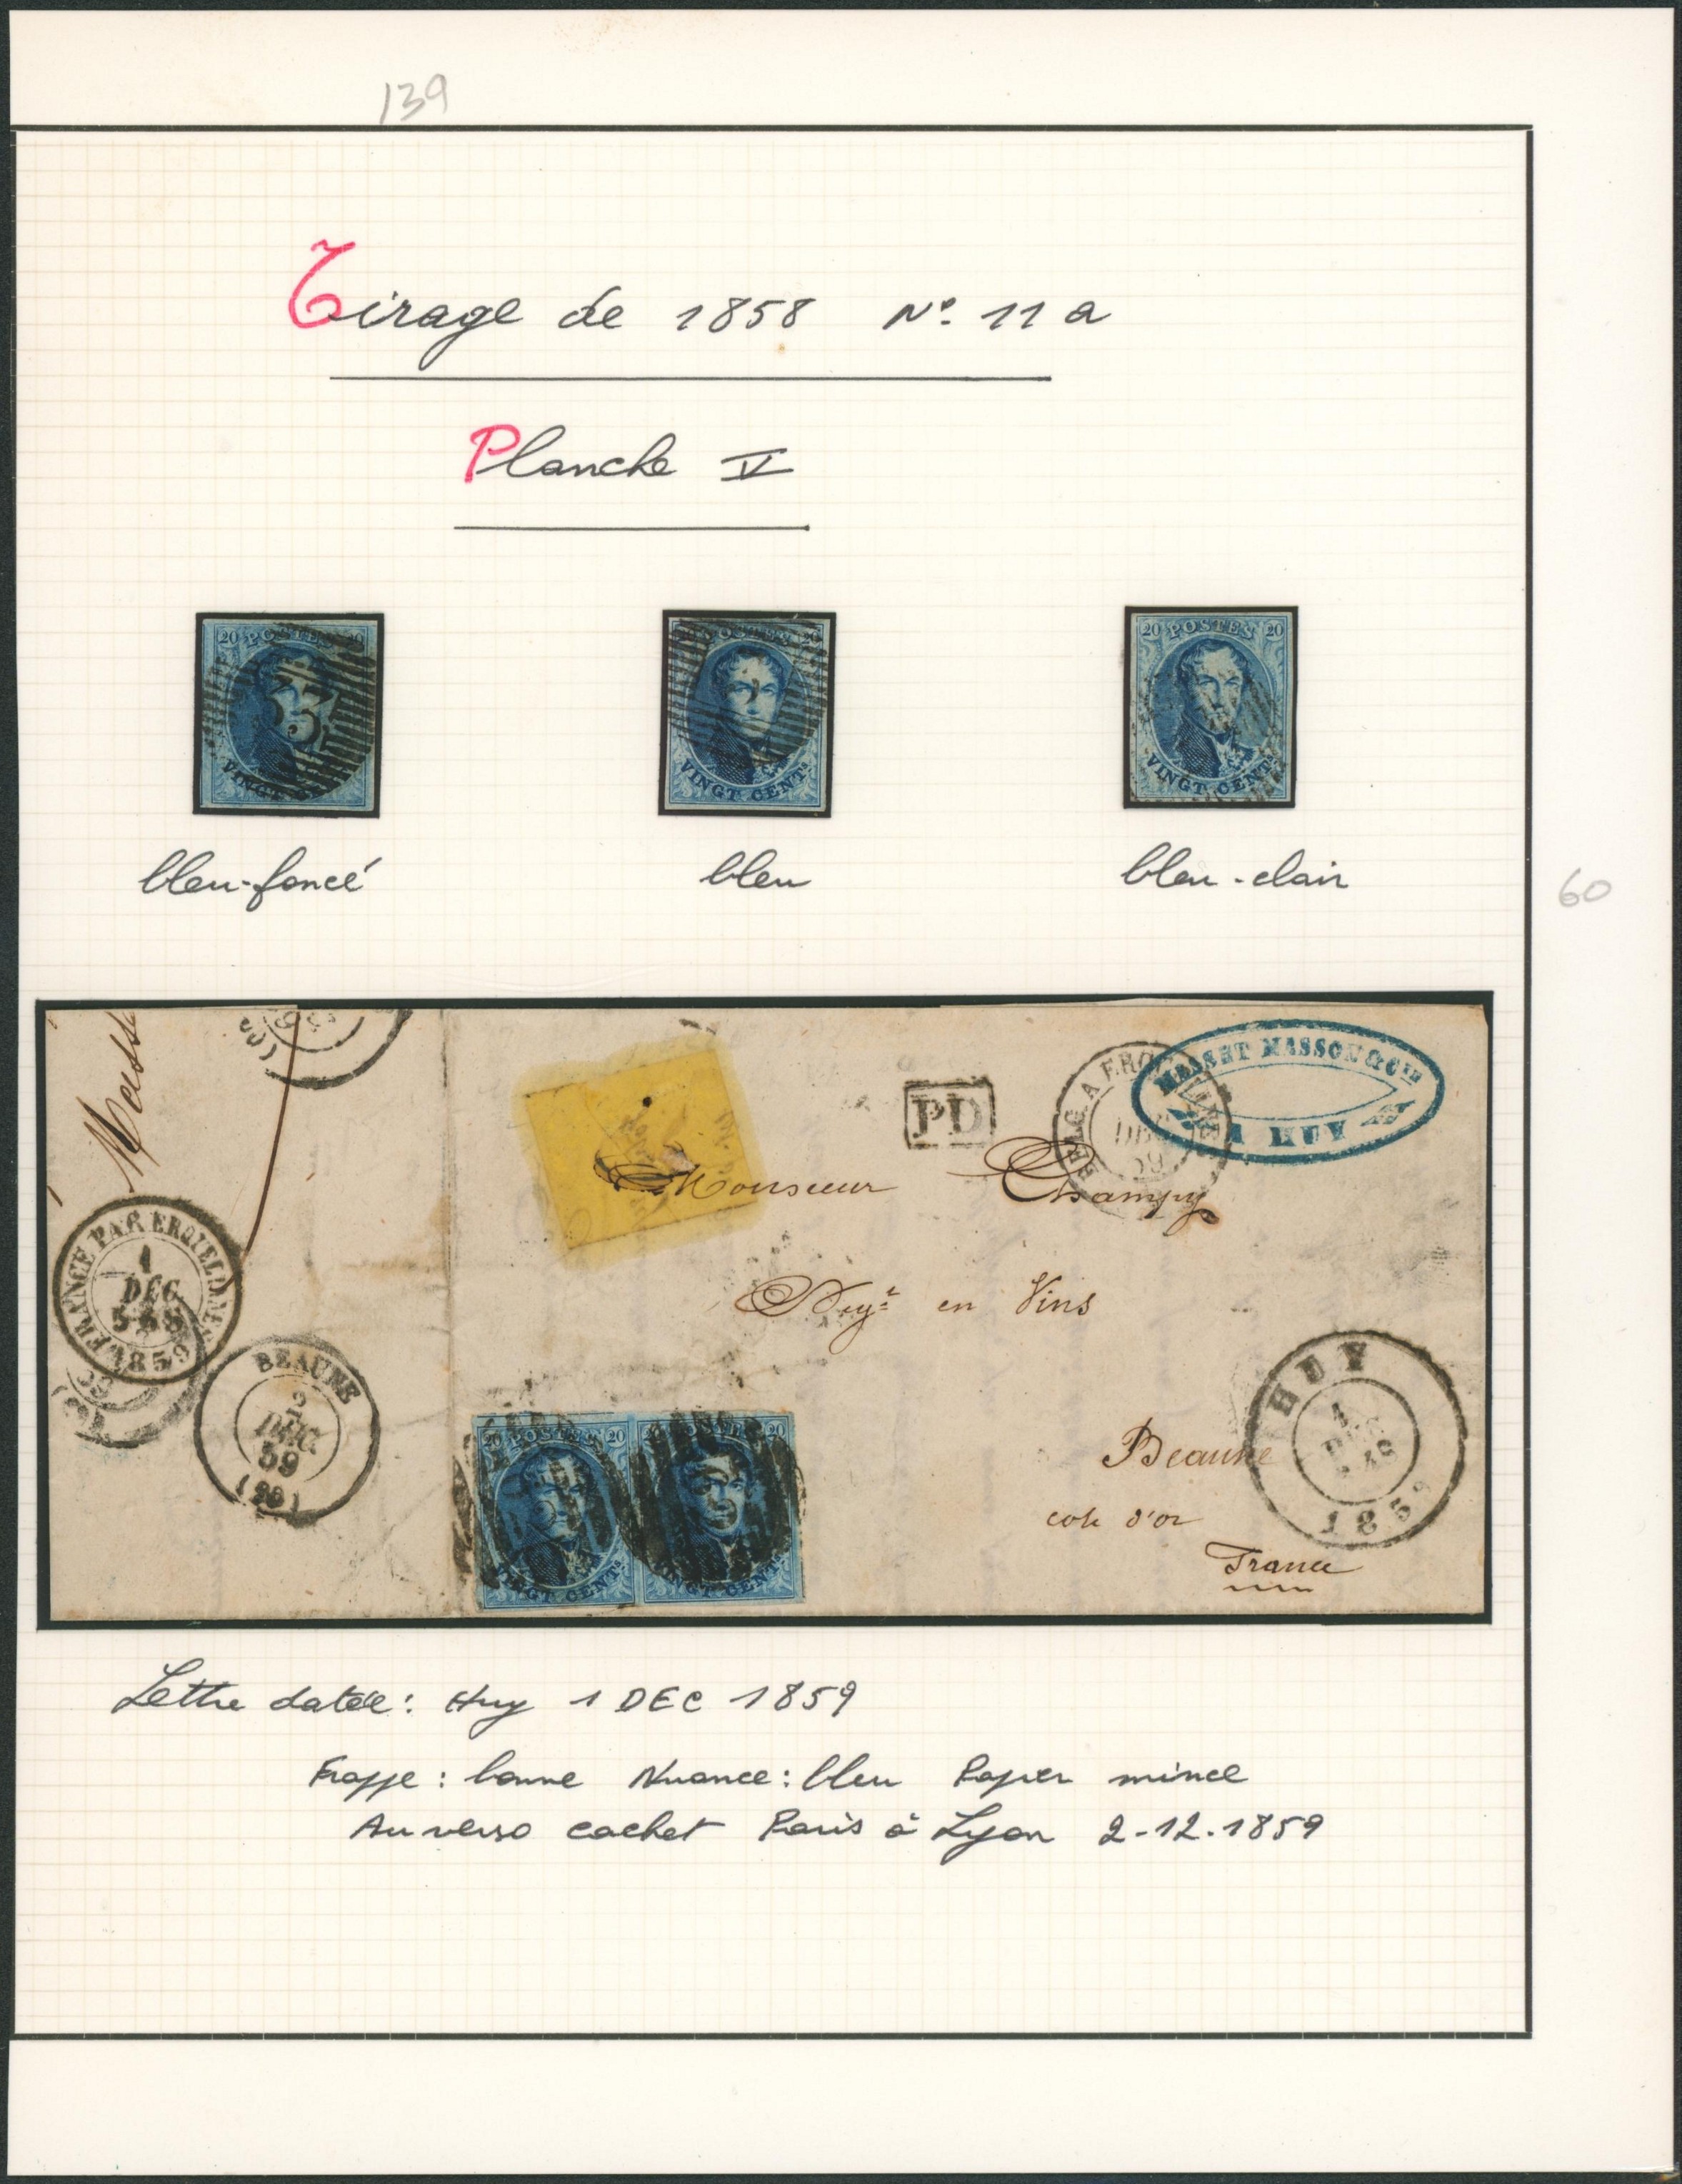 139
Tirage de 1858 No. 11a
Planche V
20 POSTES 20
33
VINGT CENTS
POSTES 20
VINGT CENTS
20 POSTES 20
VINGT CENTS
bleu-foncé
bleu
bleu-clair
60
PD
BELG. A ERQ
DEC
59
MASSON & CIE
A HUY
Monsieur Champy
Negt en Vins
FRANCE PAR ERQUELINES
1
DEC
1859
BEAUNE
2
DEC
59
(20)
20 POSTES 20
VINGT CENTS
POSTES 20
VINGT CENTS
HUY
1859
Beaune
cote d'or
France
Lettre datée: Huy 1 DEC 1859
Frappe: bonne Nuance: bleu Papier mince
Au verso cachet Paris à Lyon 2-12.1859